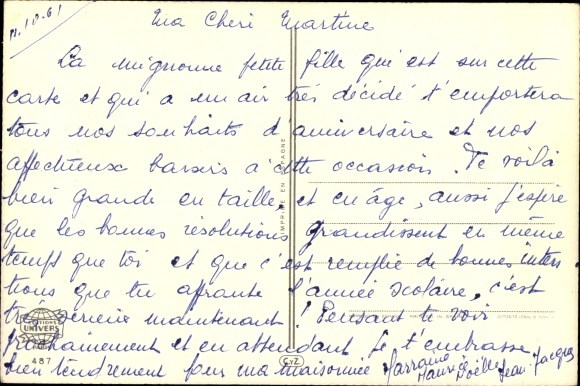 11.10.61
Ma Cheri Martine
La mignonne petite fille qui est sur cette
carte et qui a un air très décidé t'emportera
tous nos souhaits d'anniversaire et nos
affectueux baisers à cette occasion. Te voilà
bien grande en taille, et en âge, aussi j'espère
que les bonnes résolutions grandissent en même
temps que toi et que c'est remplie de bonnes inten
tions que tu affronte l'année scolaire, c'est
très sérieux maintenant ! Pensant te voir
prochainement et en attendant je t'embrasse
bien tendrement pour ma maisonnée Marraine
Joëlle Jean-Jacques
IMPRIMÉ EN ESPAGNE
EDITIONS
UNIVERS
487
CYZ